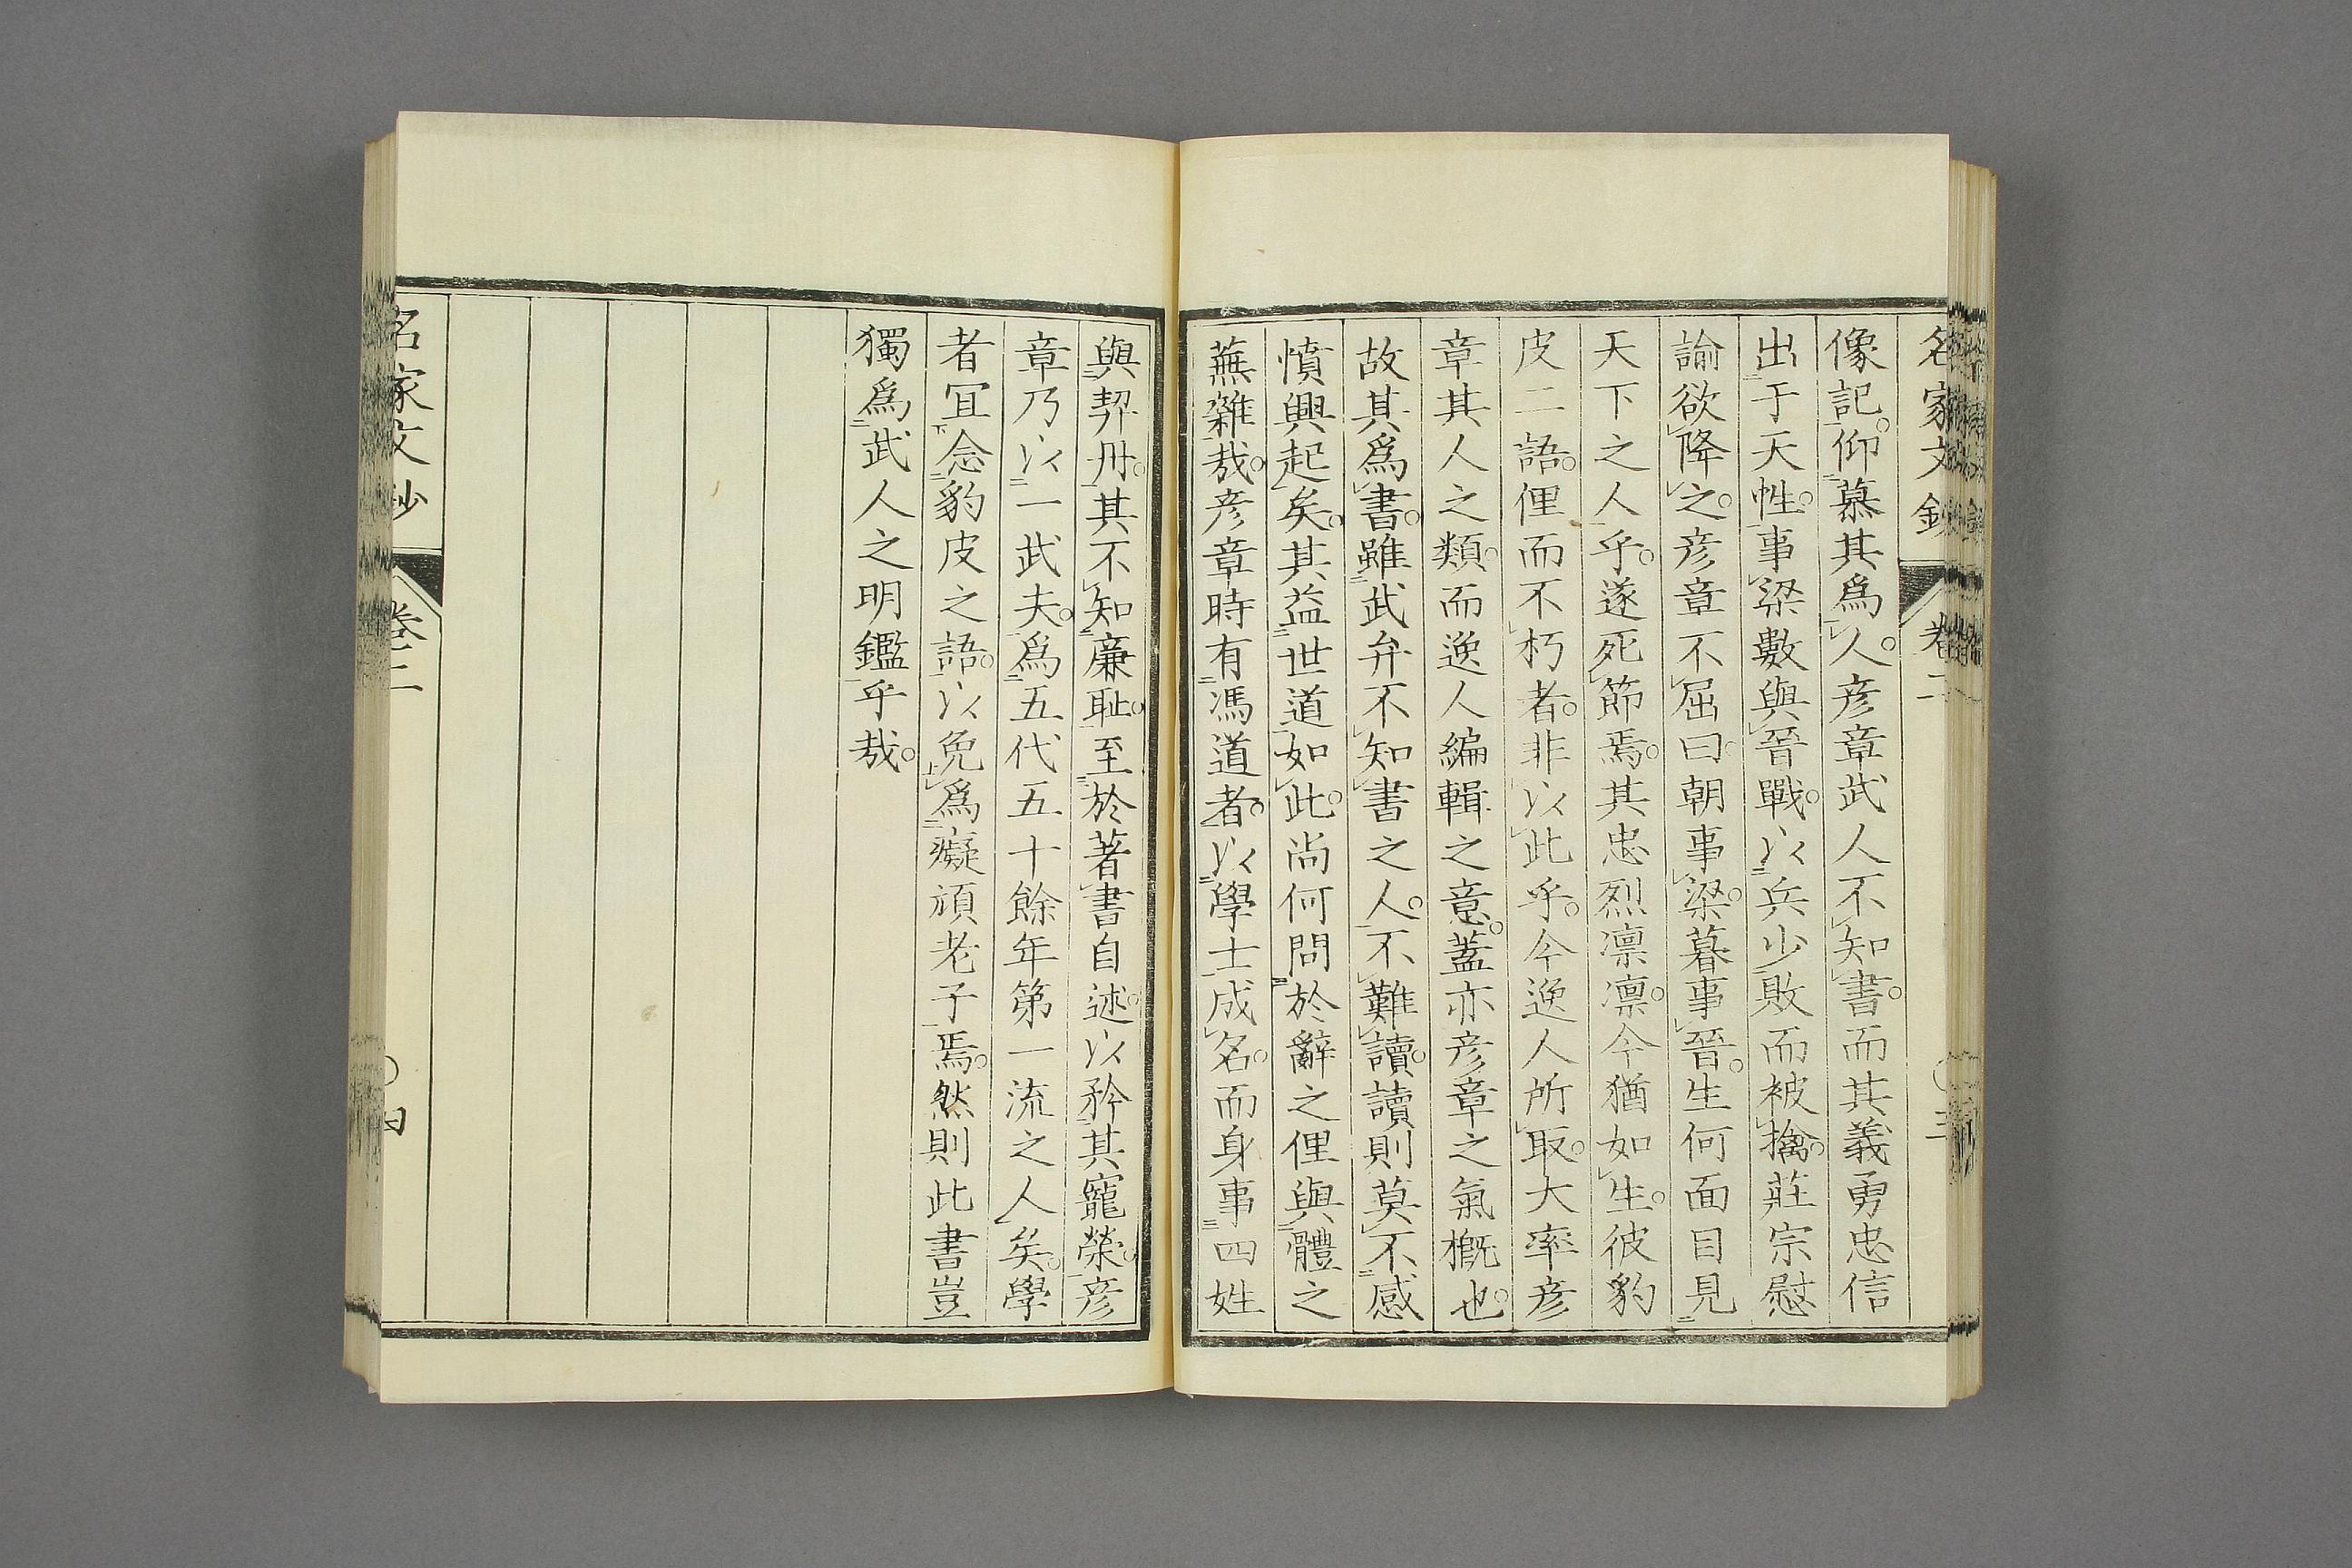 名家文鈔 卷二
像記。仰慕其爲人。彦章武人不知書。而其義勇忠信
出于天性。事梁數與晉戰。以兵少敗而被擒。莊宗慰
諭欲降之。彦章不屈曰。朝事梁。暮事晉。生何面目見
天下之人乎。遂死節焉。其忠烈凛凛。今猶如生。彼豹
皮二語。俚而不朽者。非以此乎。今逸人所取。大率彦
章其人之類。而逸人編輯之意。蓋亦彦章之氣概也。
故其爲書。雖武弁不知書之人。不難讀。讀則莫不感
憤興起矣。其益世道如此。尚何問於辭之俚與體之
蕪雜哉。彦章時有馮道者。以學士成名。而身事四姓
與契丹。其不知廉耻。至於著書自述。以矜其寵榮。彦
章乃以一武夫。爲五代五十餘年第一流之人矣。學
者冝念豹皮之語。以免爲癡頑老子焉。然則此書豈
獨爲武人之明鑑乎哉。
名家文鈔 卷二 〇四